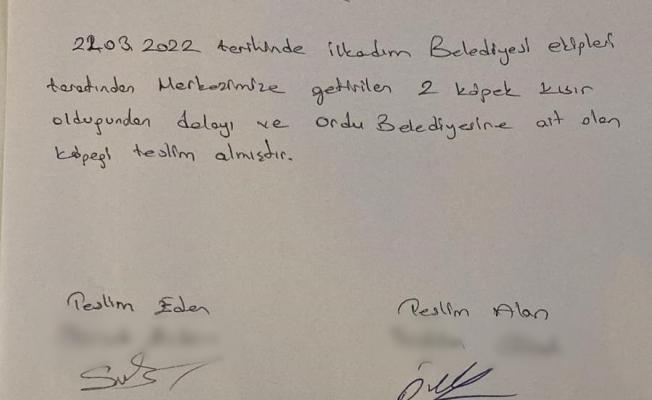 22.03.2022 tarihinde ilkadım Belediyesi ekipleri
tarafından Merkezimize getirilen 2 köpek kısır
olduğundan dolayı ve Ordu Belediyesine ait olan
köpeği teslim almıştır.
Teslim Eden
Teslim Alan